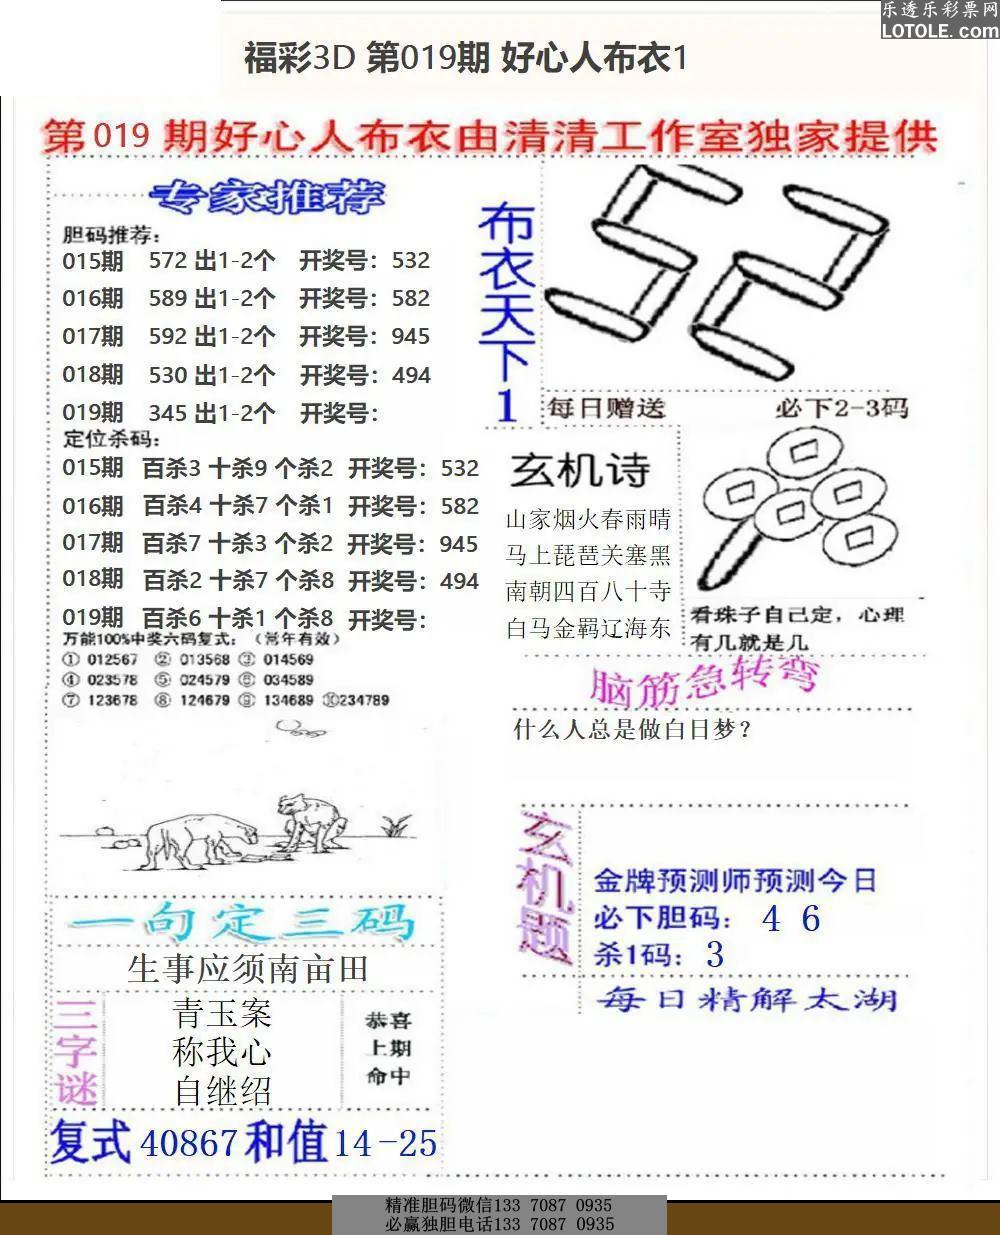 乐透乐彩票网
LOTOLE.com
福彩3D 第019期 好心人布衣1
第019期好心人布衣由清清工作室独家提供
专家推荐
胆码推荐：
015期 572 出1-2个 开奖号：532
016期 589 出1-2个 开奖号：582
017期 592 出1-2个 开奖号：945
018期 530 出1-2个 开奖号：494
019期 345 出1-2个 开奖号：
定位杀码：
015期 百杀3 十杀9 个杀2 开奖号：532
016期 百杀4 十杀7 个杀1 开奖号：582
017期 百杀7 十杀3 个杀2 开奖号：945
018期 百杀2 十杀7 个杀8 开奖号：494
019期 百杀6 十杀1 个杀8 开奖号：
万能100%中奖六码复式：（常年有效）
① 012567 ② 013568 ③ 014569
④ 023578 ⑤ 024579 ⑥ 034589
⑦ 123678 ⑧ 124679 ⑨ 134689 ⑩234789
一句定三码
生事应须南亩田
三字谜
青玉案
称我心
自继绍
恭喜
上期
命中
复式 40867 和值 14-25
布衣天下1
52
每日赠送 必下2-3码
玄机诗
山家烟火春雨晴
马上琵琶关塞黑
南朝四百八十寺
白马金羁辽海东
看珠子自己定，心理
有几就是几
脑筋急转弯
什么人总是做白日梦？
玄机题
金牌预测师预测今日
必下胆码： 4 6
杀1码： 3
每日精解太湖
精准胆码微信133 7087 0935
必赢独胆电话133 7087 0935